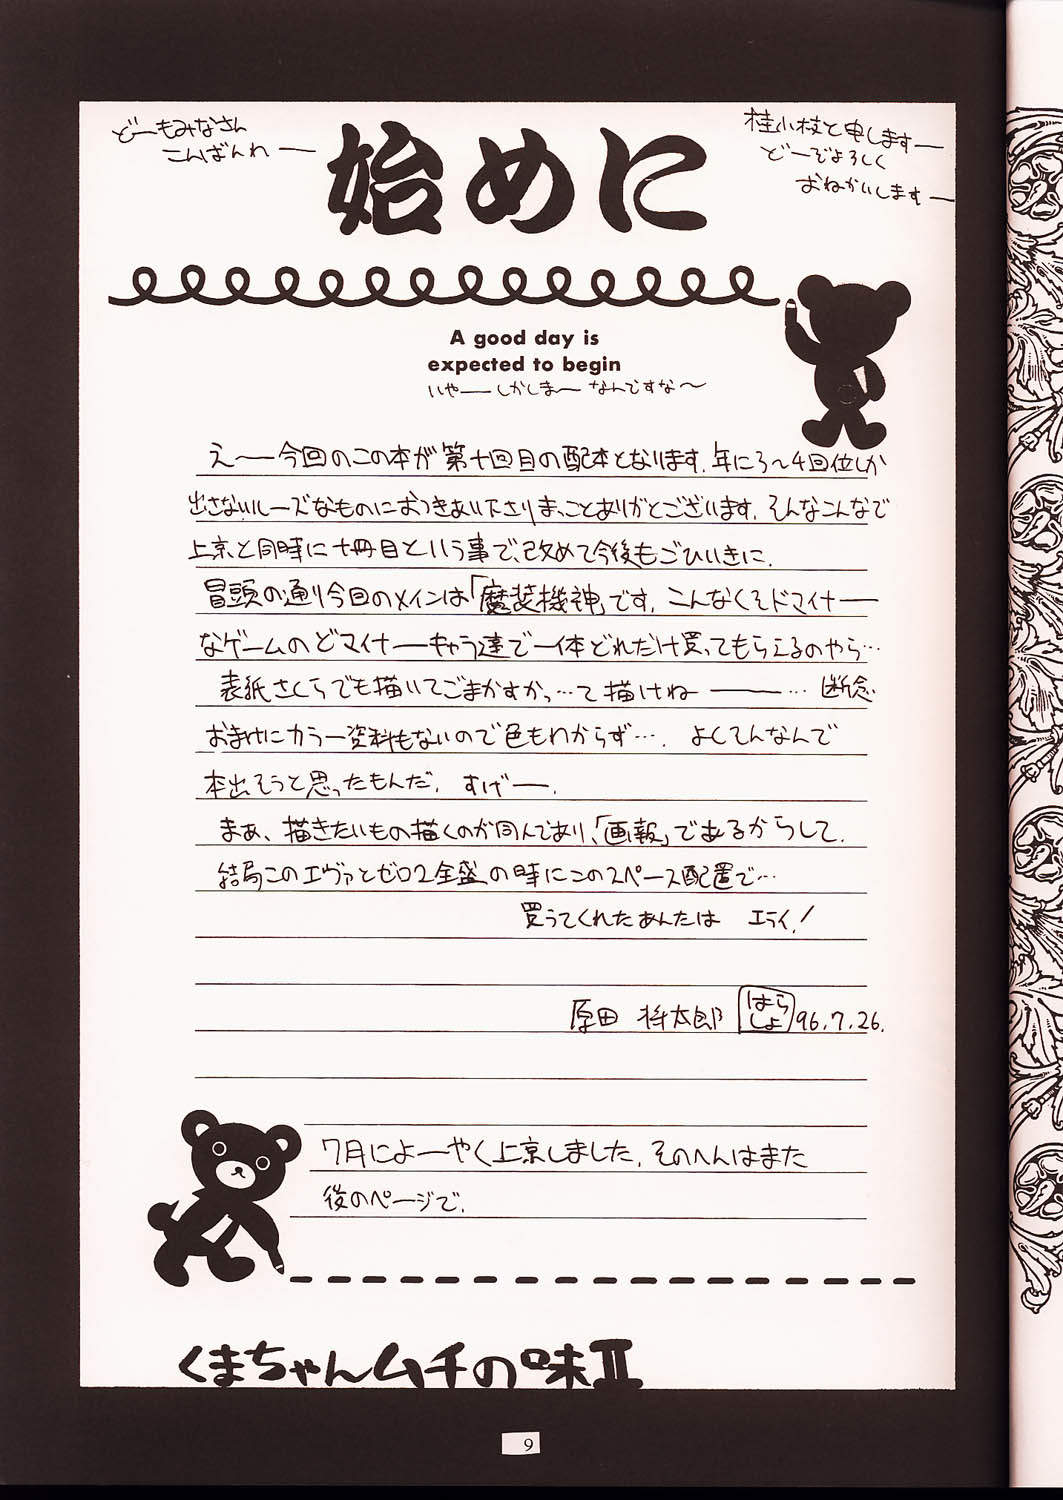 どーもみなさん
こんばんわー
始めに
桂小枝と申しますー
どーぞよろしく
おねがいしますー
A good day is
expected to begin
いやーしかしまー なんですな〜
え——今回のこの本が第十回目の配本となります。年に3〜4回位しか
出さないルーズなものにおつきあい下さりまっことありがとございます。そんなこんなで
上京と同時に十冊目という事で、改めて今後もごひいきに。
冒頭の通り今回のメインは「魔装機神」です。こんなくそドマイナー
なゲームのどマイナーキャラ達で一体どれだけ買ってもらえるのやら…
表紙さくらでも描いてごまかすかっ…て描けねー——… 断念
おまけにカラー資料もないので色もわからず…. よくそんなんで
本出そうと思ったもんだ。 すげー.
まぁ、描きたいもの描くのが同人であり、「画報」であるからして.
結局このエヴァとゼロ2全盛の時にこのスペース配置で…
買うてくれたあんたは エライ!
原田 将太郎 はらしょ 96.7.26.
7月によーやく上京しました。そのへんはまた
後のページで.
くまちゃんムチの味II
9